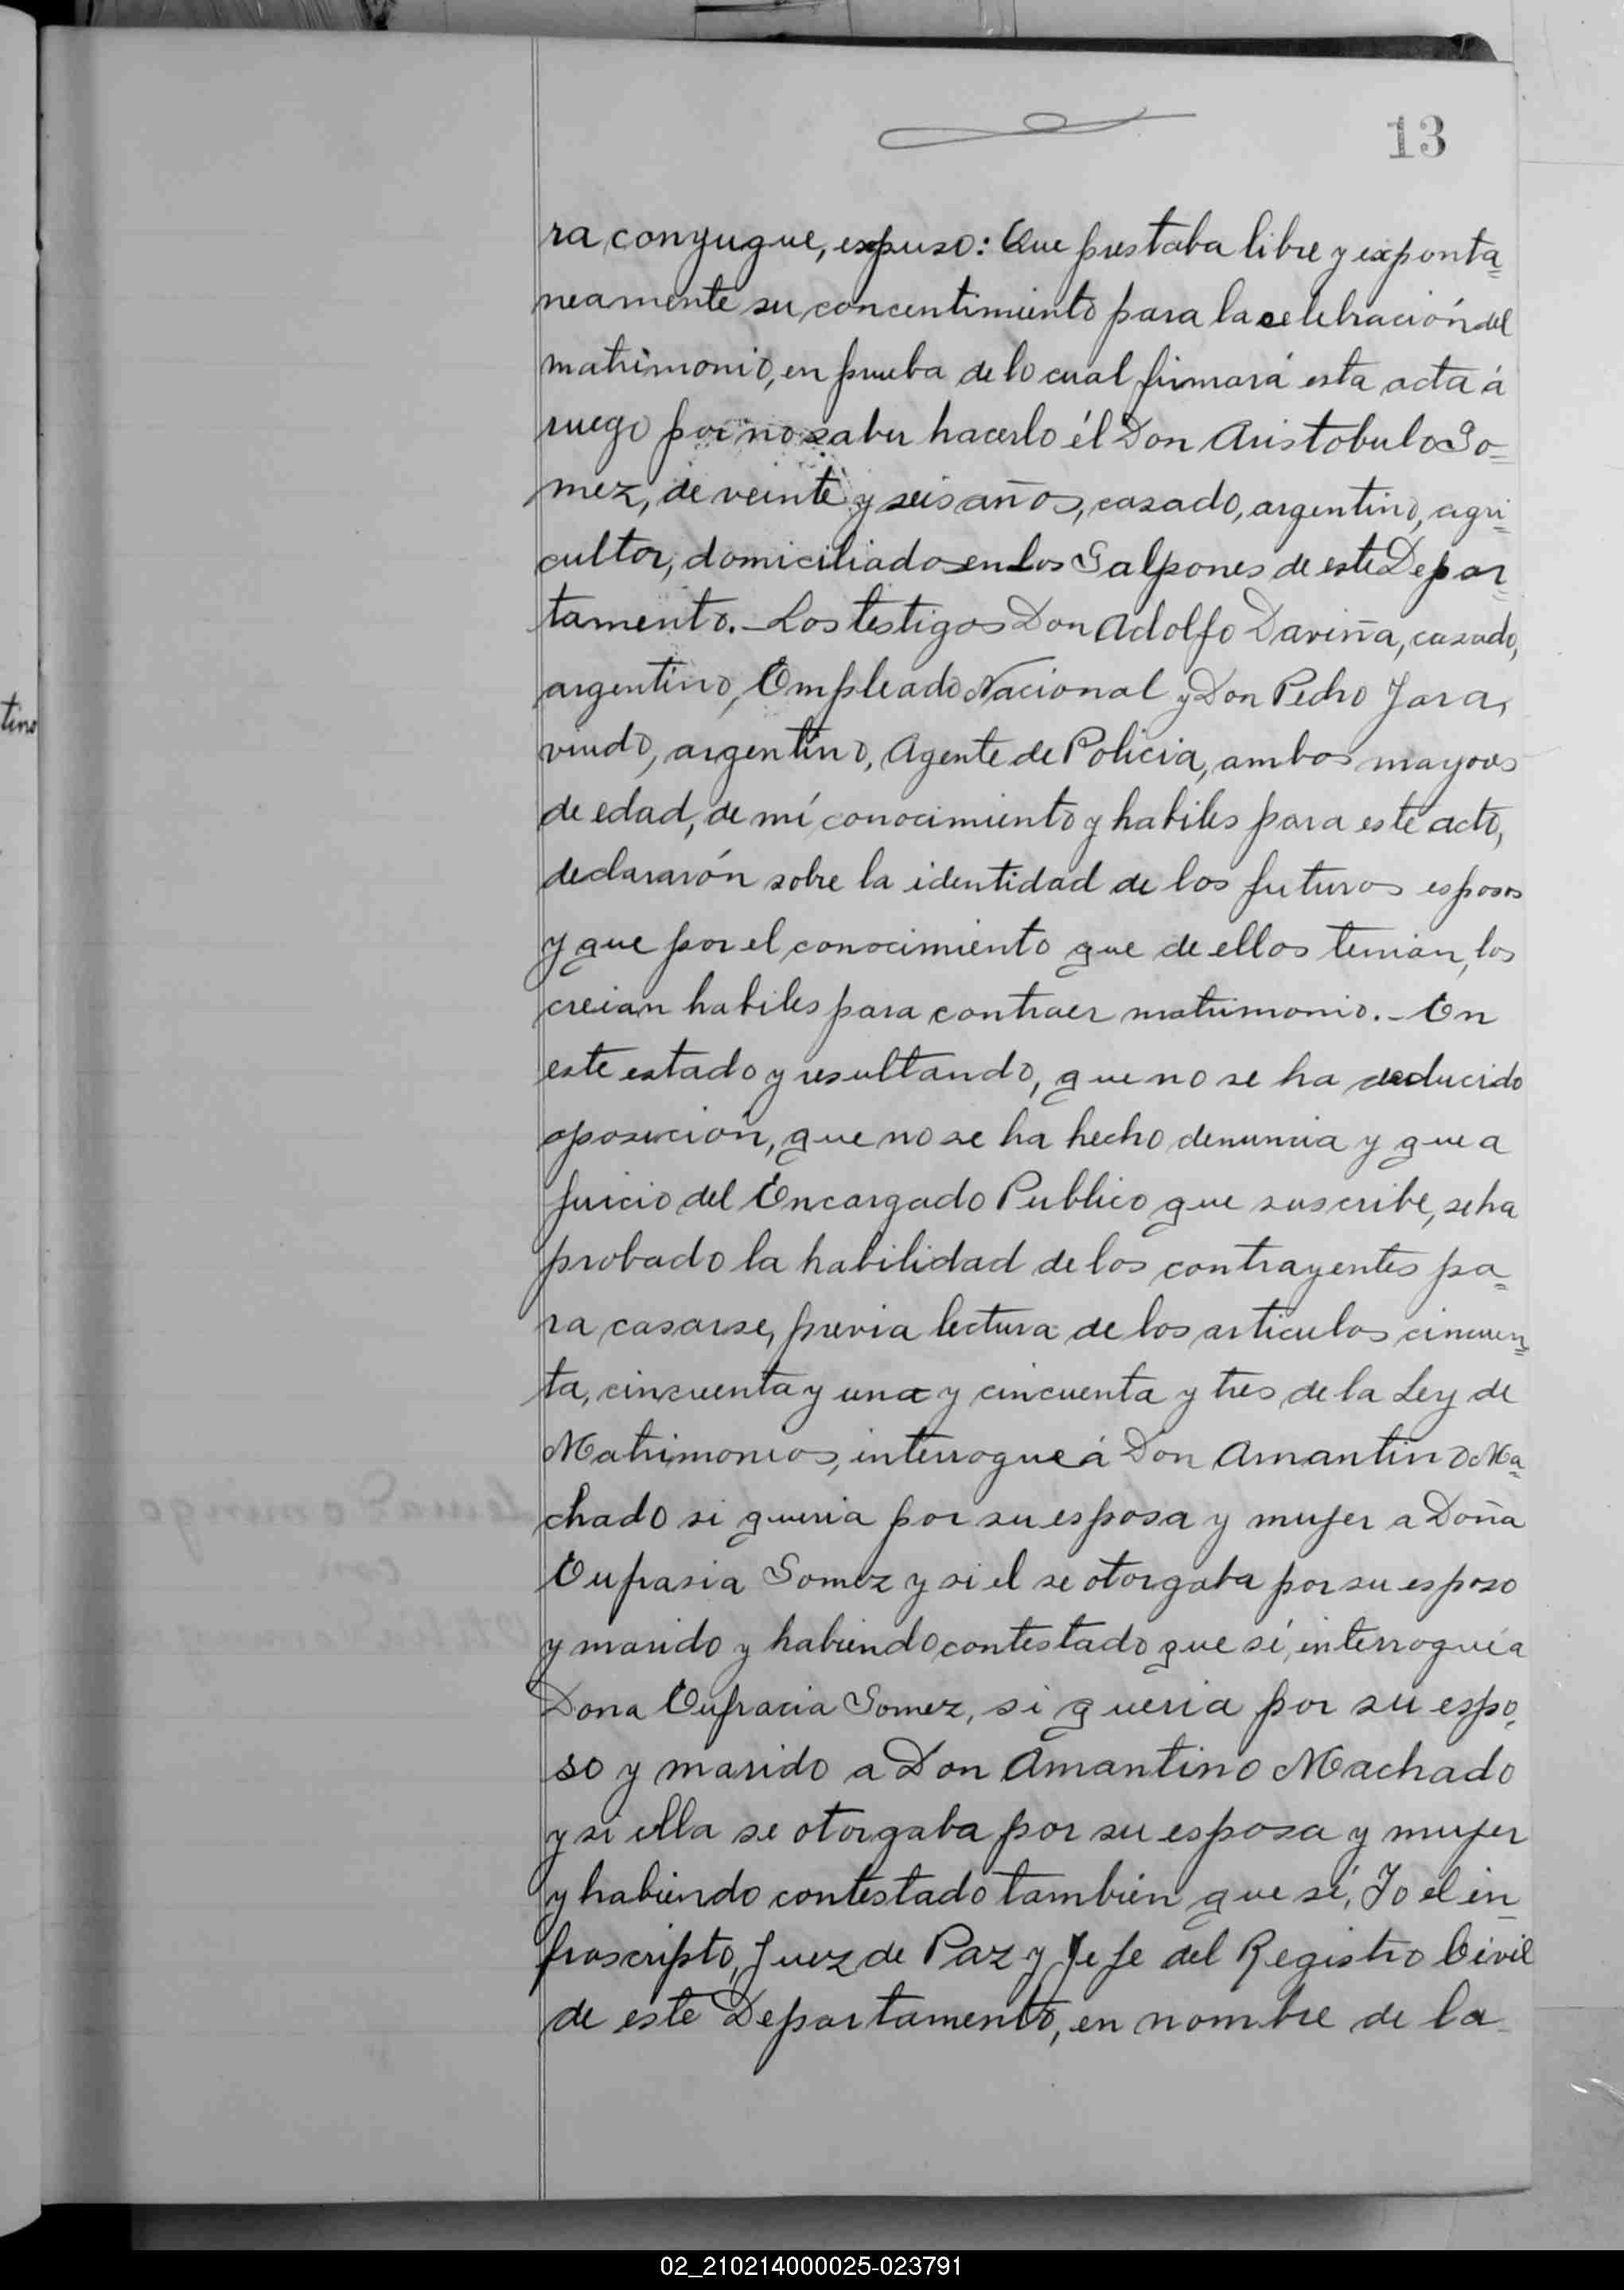 13
ra conyugue, expuso: Que prestaba libre y exponta=
neamente su concentimiento para la celebración del
matrimonio, en prueba de lo cual firmará esta acta á
ruego por no saber hacerlo él Don Aristobulo Go=
mez, de veinte y seis años, casado, argentino, agri=
cultor, domiciliado en los Galpones de este Depar=
tamento.- Los testigos Don Adolfo Daviña, casado,
argentino, Empleado Nacional y Don Pedro Jara,
viudo, argentino, Agente de Policia, ambos mayores
de edad, de mí conocimiento y habiles para este acto,
declararón sobre la identidad de los futuros esposos
y que por el conocimiento que de ellos tenian, los
creian habiles para contraer matrimonio.- En
este estado y resultando, que no se ha deducido
oposición, que no se ha hecho denuncia y que a
juicio del Encargado Publico que suscribe, se ha
probado la habilidad de los contrayentes pa=
ra casarse, previa lectura de los articulos cincuen=
ta, cincuenta y una y cincuenta y tres de la Ley de
Matrimonios, interrogue á Don Amantino Ma=
chado si queria por su esposa y mujer a Doña
Eufrasia Gomez y si el se otorgaba por su esposo
y marido y habiendo contestado que sí, interrogué a
Dona Eufracia Gomez, si queria por su espo=
so y marido a Don Amantino Machado
y si ella se otorgaba por su esposa y mujer
y habiendo contestado tambien que sí, Yo el in=
frascripto, Juez de Paz y Jefe del Registro Civil
de este Departamento, en nombre de la
tino
02_210214000025-023791